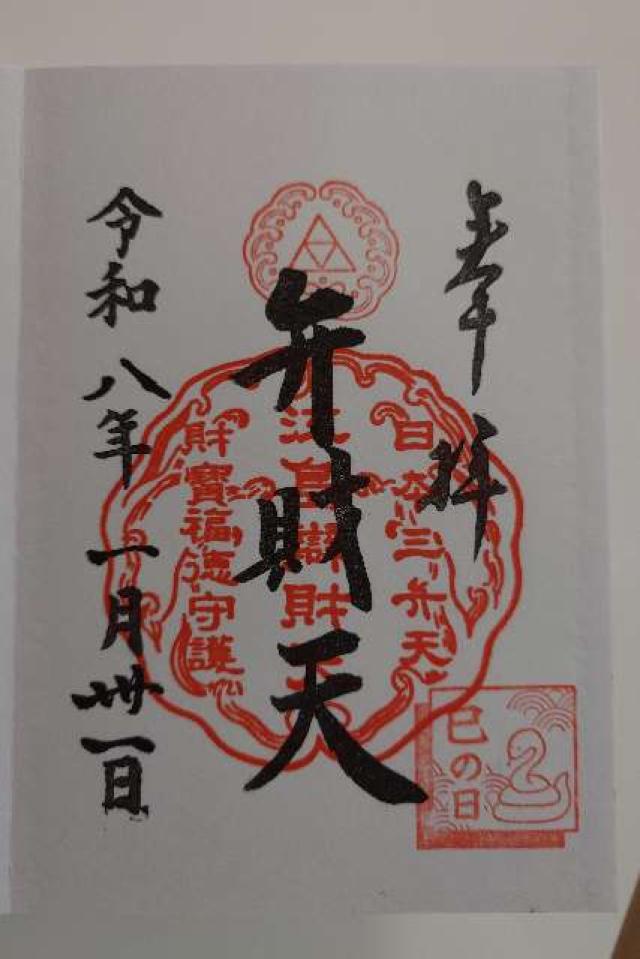 奉拝
日本三弁天
江島辯財天
弁財天
財寶福徳守護
令和八年一月卅一日
巳の日